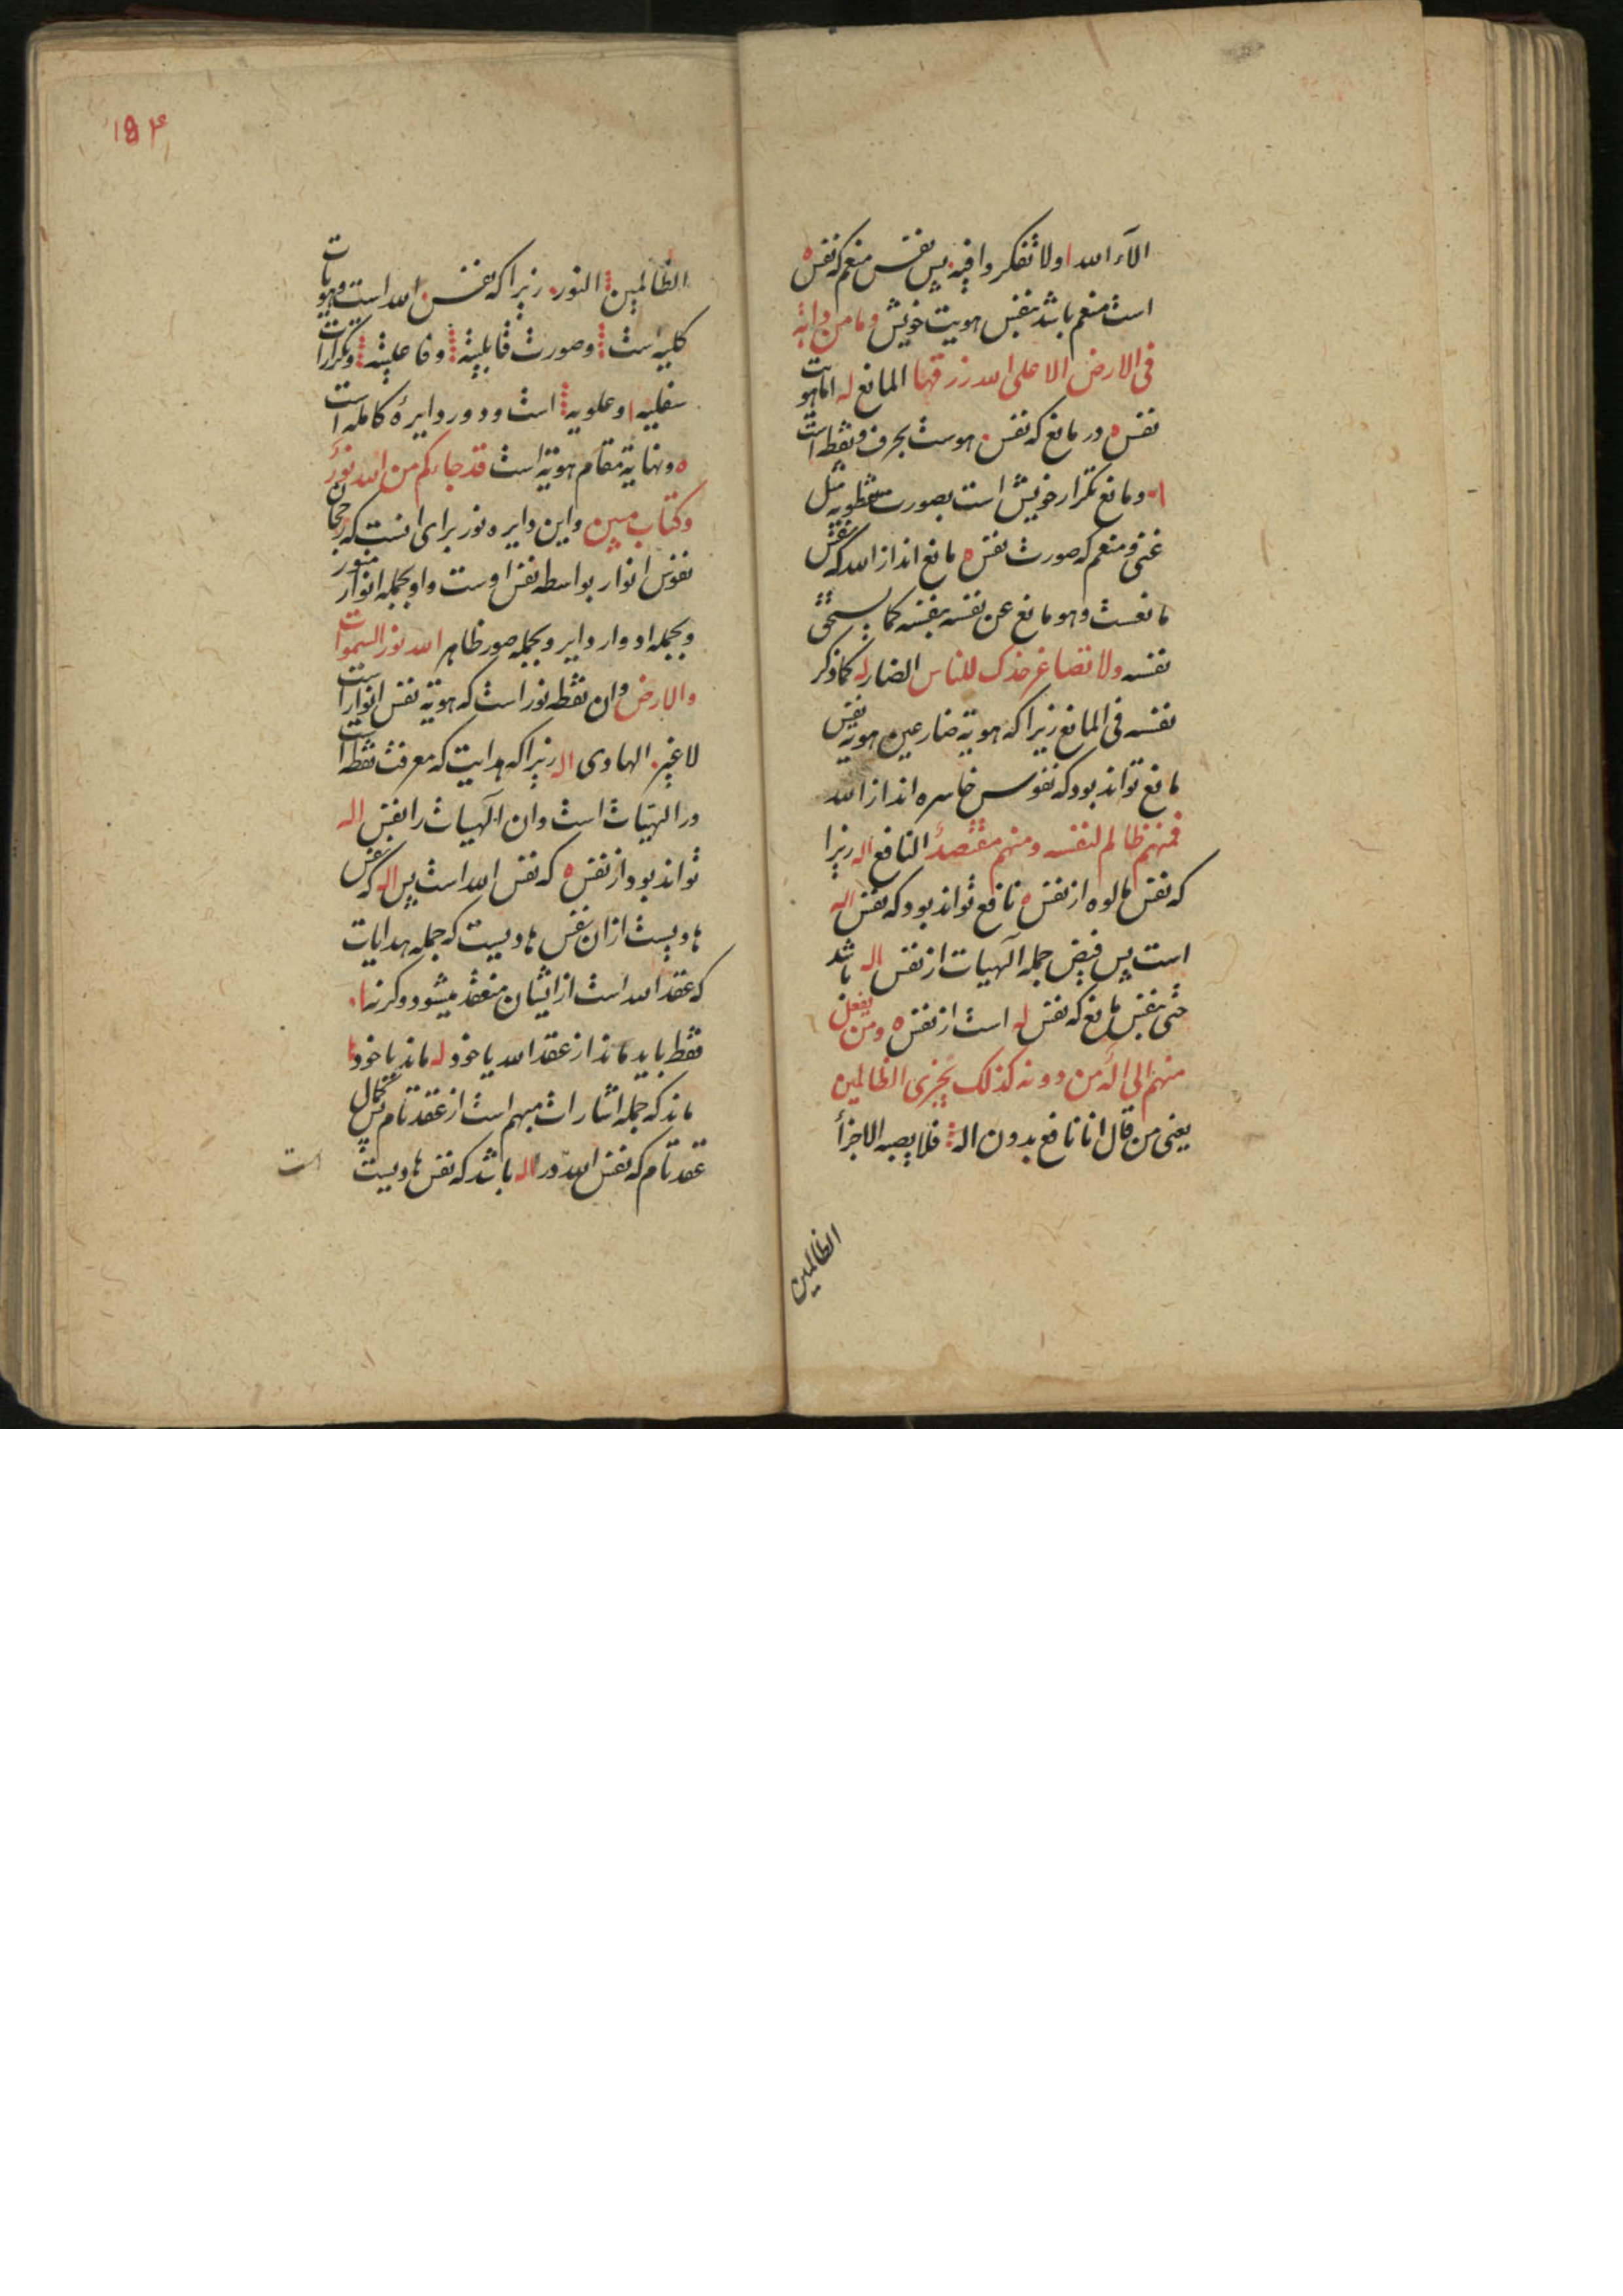 الآء الله ا ولا تفكروا فيه پس نفس منعم كه نفس ه
است منعم باشد بنفس هويت خويش وما من دابة
فى الارض الا على الله رزقها المانع له اما هويت
نفس ه در مانع كه نفس هوست بحرف ونقطه است
ا ومانع تكرار خويش است بصورت مثل
غنى ومنعم كه صورت نفس ه مانع اند از الله كه نفس
مانعست وهو مانع عن نفسه بنفسه كما يستحق
نفسه ولا تصاعر خدك للناس الضار له كما ذكر
نفسه فى المانع زيرا كه هوية ضار عين هوية نفس
مانع تواند بود كه نفوس خاسره اند از الله
فمنهم ظالم لنفسه ومنهم مقتصد النافع اله زيرا
كه نفس مالوه از نفس ه نافع تواند بود كه نفس اله
است پس فيض جمله الهيات از نفس اله باشد
حتى بنفس مانع كه نفس له است از نفس ه ومن يفعل
منهم الى اله من دونه كذلك نجزى الظالمين
يعنى من قال انا نافع بدون اله فلا يصبه الا جزأ
الظالمين
۱۵۴
الظالمين النور زيرا كه نفس الله است وهويات
كليه است وصورت قابليته وفاعليته وتكرارات
سفليه ا وعلويه است ودور دايرۀ كامله است
ه ونهاية مقام هوية است قد جاءكم من الله نور
وكتاب مبين واين دايره نور براى انست كه رجحان
نفوس انوار بواسطه نفس اوست واو بجمله انوار منور
وبجمله ادوار داير وبجمله صور ظاهر الله نور السموات
والارض وان نقطه نور است كه هوية نفس انوار است
لا غير الهادى اله زيرا كه هدايت كه معرفت نقطه است
در الهيات است وان الهيات را نفس اله
تواند بود از نفس ه كه نفس الله است پس اله كه نفس
هاديست از ان نفس هاديست كه جمله هدايات
كه عقد الله است از ايشان منعقد ميشود وكرنه ا
نقطه بايد ماند از عقد الله يا خود له ماند يا خود ه
ماند كه جمله اشارات مبهم است از عقد تام پس كمال
عقد تام كه نفس الله در اله باشد كه نفس هاديست
است